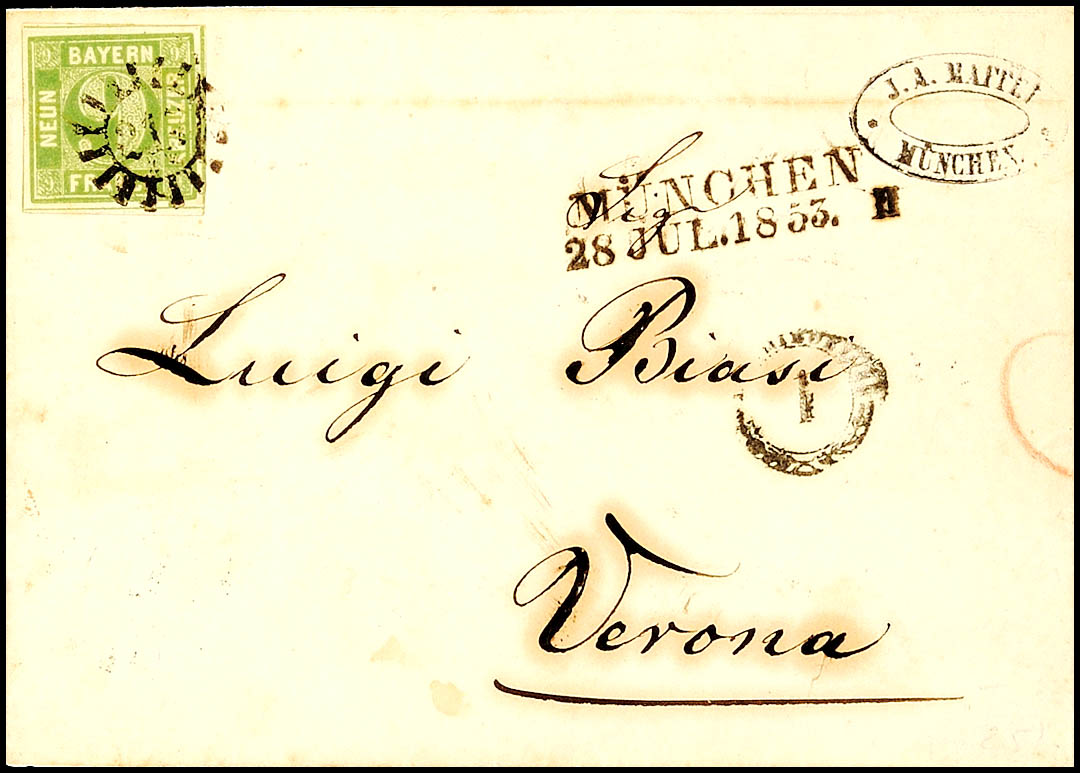 BAYERN
NEUN
9
FR
J. A. MAFFEI
MÜNCHEN.
MÜNCHEN
28 JUL. 1853. II
Sigr
Luigi Biasi
1
Verona